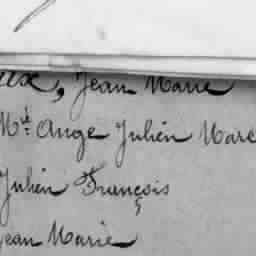 eux, Jean Marie
Md Ange Julien Marc
Julien Françòis
Jean Marie